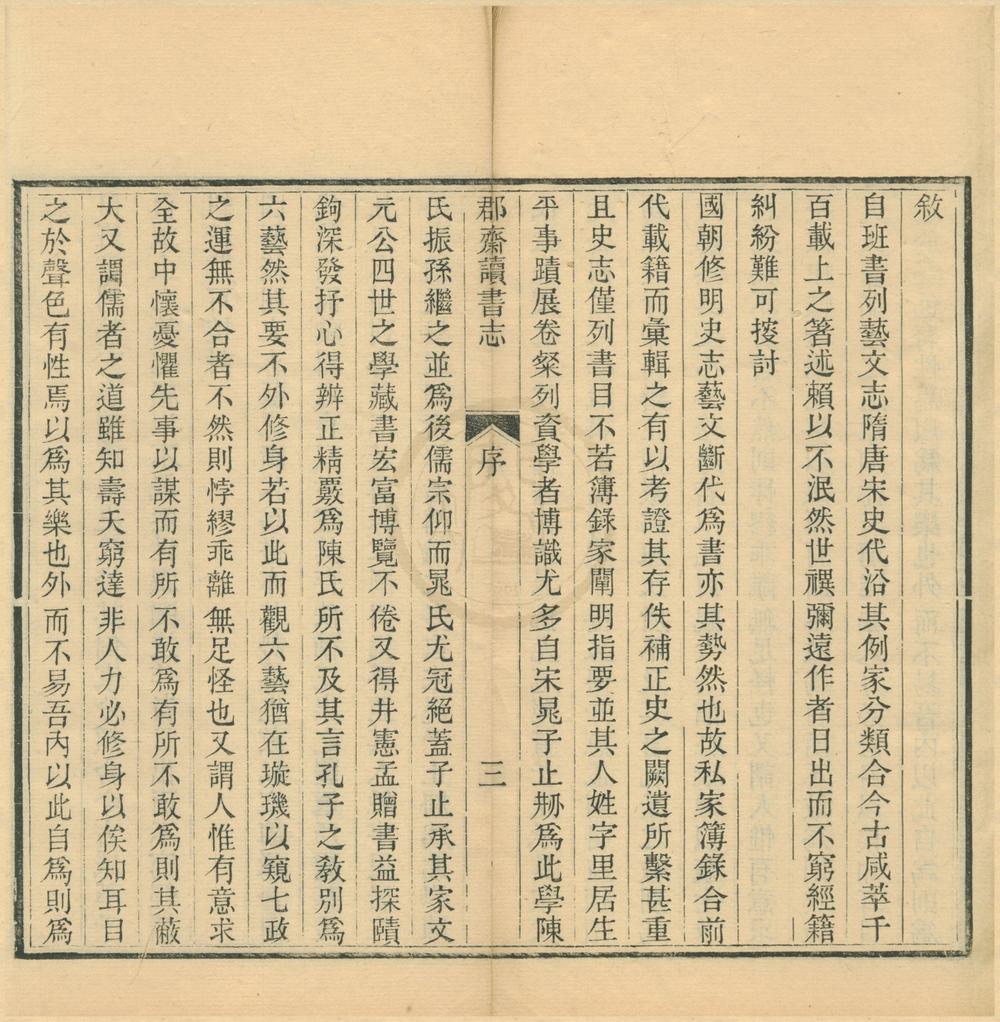 敘
自班書列藝文志隋唐宋史代沿其例家分類合今古咸萃千
百載上之箸述賴以不泯然世禩彌遠作者日出而不窮經籍
糾紛難可揬討
國朝修明史志藝文斷代爲書亦其勢然也故私家簿錄合前
代載籍而彙輯之有以考證其存佚補正史之闕遺所繫甚重
且史志僅列書目不若簿錄家闡明指要並其人姓字里居生
平事蹟展卷粲列資學者博識尤多自宋晁子止刱爲此學陳
郡齋讀書志
序
三
氏振孫繼之並爲後儒宗仰而晁氏尤冠絕蓋子止承其家文
元公四世之學藏書宏富博覽不倦又得井憲孟贈書益探賾
鉤深發抒心得辨正精覈爲陳氏所不及其言孔子之敎別爲
六藝然其要不外修身若以此而觀六藝猶在璇璣以窺七政
之運無不合者不然則悖繆乖離無足怪也又謂人惟有意求
全故中懷憂懼先事以謀而有所不敢爲有所不敢爲則其蔽
大又謂儒者之道雖知壽夭窮達非人力必修身以俟知耳目
之於聲色有性焉以爲其樂也外而不易吾內以此自爲則爲